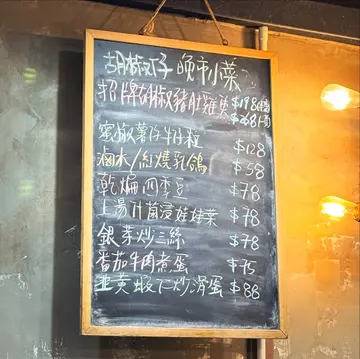 胡椒仔 晚市小菜
招牌胡椒豬肚雞煲 $198
$268
蜜椒薯仔牛仔粒 $128
鹵水/紅燒乳鴿 $58
乾煸四季豆 $78
上湯什菌浸娃娃菜 $78
銀芽炒三絲 $78
番茄牛肉煮蛋 $75
韭黃蝦仁炒滑蛋 $88